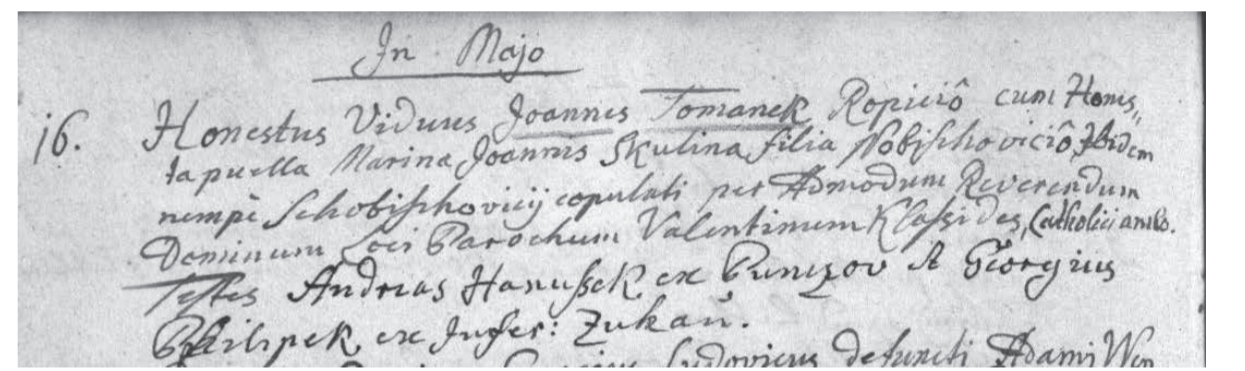 In Majo
16. Honestus Viduus Joannes Tomanek Ropiciô cum Hones,,
ta puella Marina Joannis Skulina filia Nobischoviciô Ibidem
nempè Schobischovicij copulati per Admodum Reverendum
Dominum Loci Parochum Valentinum Klassides, Catholici ambo.
Testes Andreas Hanussek ex Punczov et Georgius
Philipek ex Infer: Zukaū.
Ludovicus defuncti Adami Wen